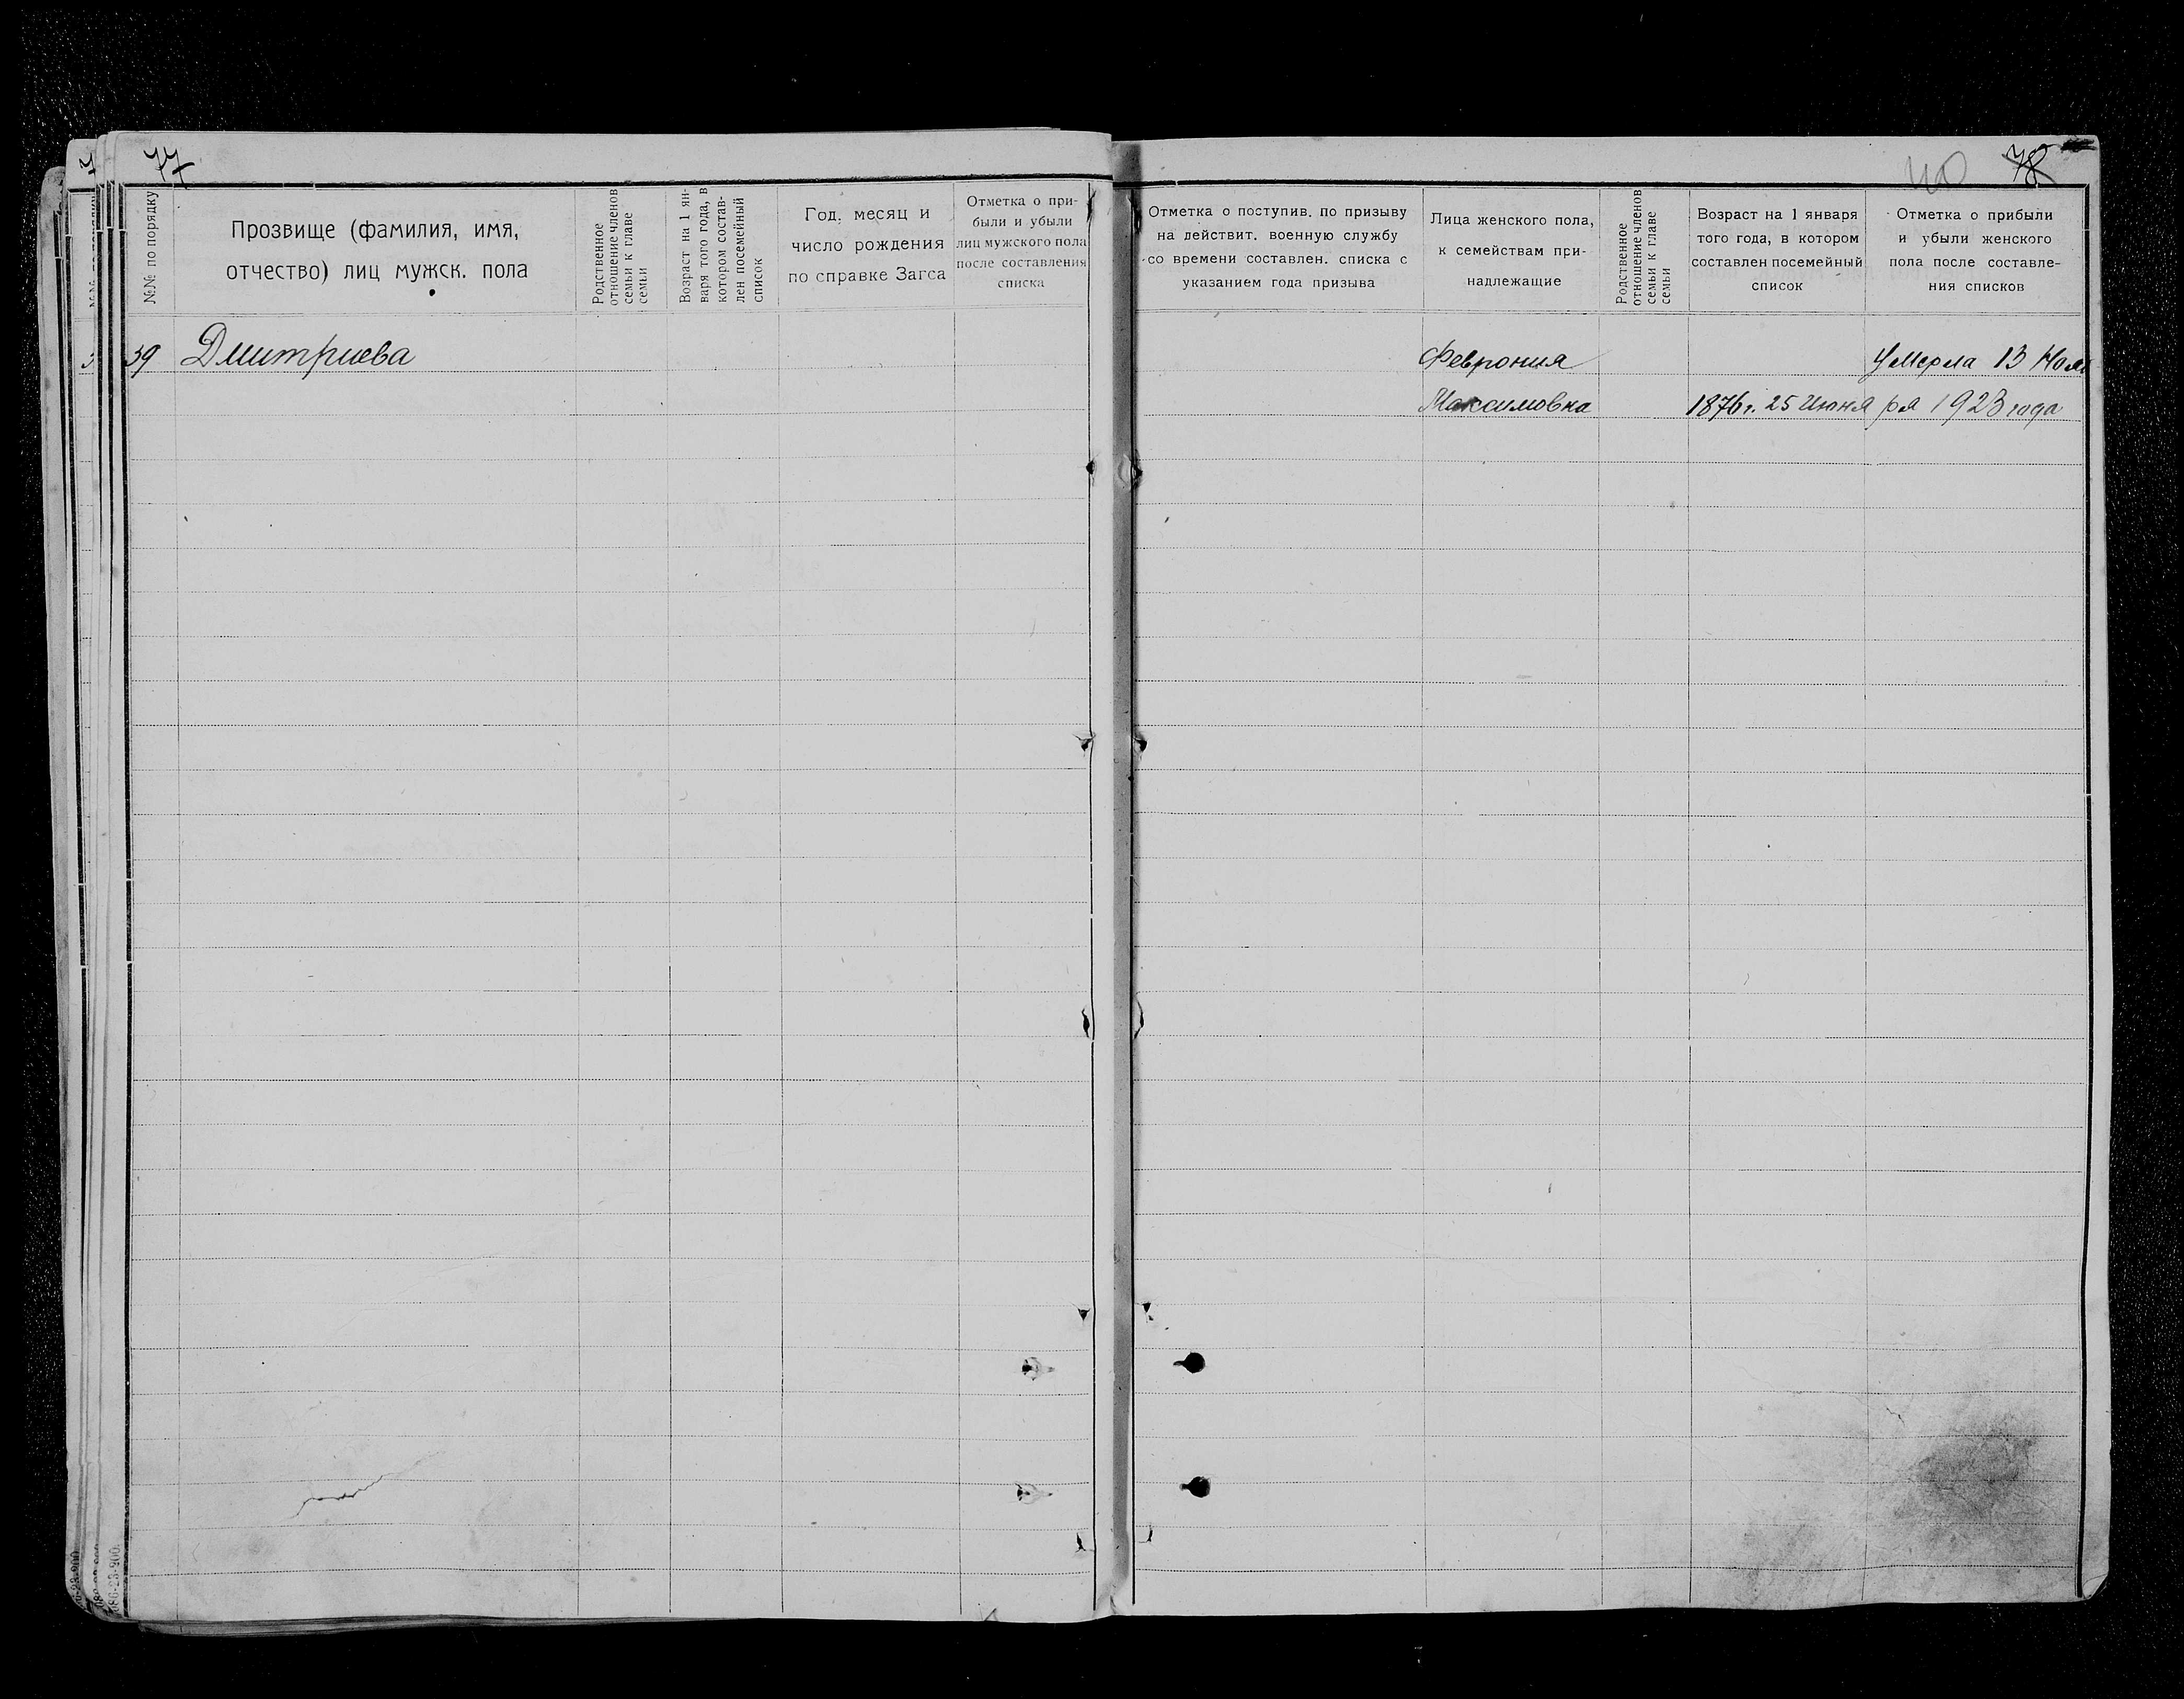 77
№№ по порядку
Прозвище (фамилия, имя,
отчество) лиц мужск. пола
Родственное
отношение членов
семьи к главе
семьи
Возраст на 1 ян-
варя того года, в
котором состав-
лен посемейный
список
Год, месяц и
число рождения
по справке Загса
Отметка о при-
были и убыли
лиц мужского пола
после составления
списка
39 Дмитриева
086-23-900.
40 78
Отметка о поступив. по призыву
на действит. военную службу
со времени составлен. списка с
указанием года призыва
Лица женского пола,
к семействам при-
надлежащие
Родственное
отношение членов
семьи к главе
семьи
Возраст на 1 января
того года, в котором
составлен посемейный
список
Отметка о прибыли
и убыли женского
пола после составле-
ния списков
Феврония Умерла 13 Нояб
Максимовна 1876 г. 25 Июня ря 1923 года